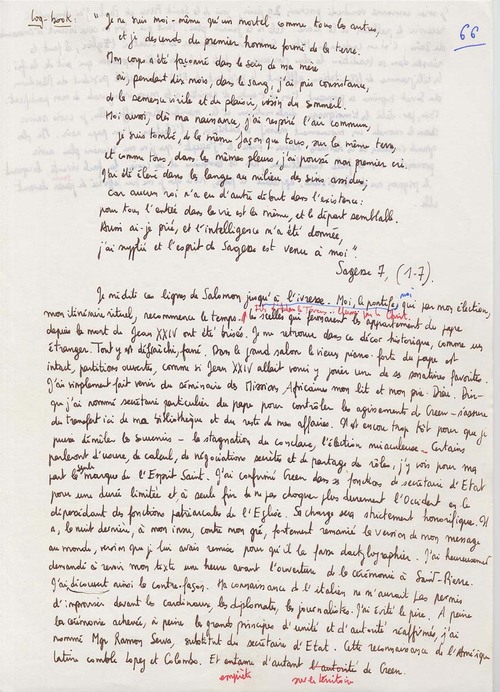 Log-book: "Je ne suis moi-même qu'un mortel comme tous les autres,
66
et je descends du premier homme formé de la terre.
Mon corps a été façonné dans le sein de ma mère
où, pendant dix mois, dans le sang, j'ai pris consistance,
de la semence virile et du plaisir, voisin du sommeil.
Moi aussi, dès ma naissance, j'ai respiré l'air commun,
je suis tombé, de la même façon que tous, sur la même terre,
et comme tous, dans les mêmes pleurs, j'ai poussé mon premier cri.
J'ai été élevé dans les langes au milieu des soins assidus;
car aucun roi n'a eu d'autre début dans l'existence:
pour tous l'entrée dans la vie est la même, et le départ semblable.
Aussi ai-je prié, et l'intelligence m'a été donnée,
j'ai supplié et l'esprit de Sagesse est venu à moi".
Sagesse 7, (1-7).
Je médite ces lignes de Salomon jusqu'à l'ivresse. Moi, le pontife, moi qui par mon élection,
mon itinéraire rituel, recommence le temps. les scellés qui fermaient les appartements du pape
depuis la mort de Jean XXIV ont été brisés. Je me retrouve dans ce décor historique, comme un
étranger. Tout y est défraîchi, fané. Dans le grand salon le vieux piano-forte du pape est
intact, partitions ouvertes, comme si Jean XXIV allait venir y jouer une de ses sonatines favorites.
J'ai simplement fait venir du séminaire des Missions Africaines mon lit et mon prie-Dieu. Bien
que j'ai nommé secrétaire particulier du pape pour contrôler les agissements de Green - s'assure
du transfert ici de ma bibliothèque et du reste de mes affaires. Il est encore trop tôt pour que je
puisse démêler les souvenirs - la stagnation du conclave, l'élection miraculeuse - Certains
parleront d'usure, de calcul, de négociations secrètes et de partage des rôles, j'y vois pour ma
part la seule marque de l'Esprit Saint. J'ai confirmé Green dans ses fonctions de secrétaire d'Etat
pour une durée limitée et à seule fin de ne pas choquer plus durement l'Occident en le
dépossédant des fonctions patriarcales de l'Eglise. Sa charge sera strictement honorifique. Il
a, la nuit dernière, à mon insu, contre mon gré, fortement remanié la version de mon message
au monde, version que je lui avais remise pour qu'il la fasse dactylographier. J'ai heureusement
demandé à revoir mon texte une heure avant l'ouverture de la cérémonie à Saint-Pierre.
J'ai découvert ainsi la contre-façon. Ma connaissance de l'italien ne m'aurait pas permis
d'improviser devant les cardinaux, les diplomates, les journalistes. J'ai évité le pire. A peine
la cérémonie achevée, à peine les grands principes d'unité et d'autorité réaffirmés, j'ai
nommé Mgr Ramon Serva, substitut du secrétaire d'Etat. Cette reconnaissance de l'Amérique
latine comble Lopez et Colombo. Et entame d'autant l'autorité de Green.
empiète sur le territoire